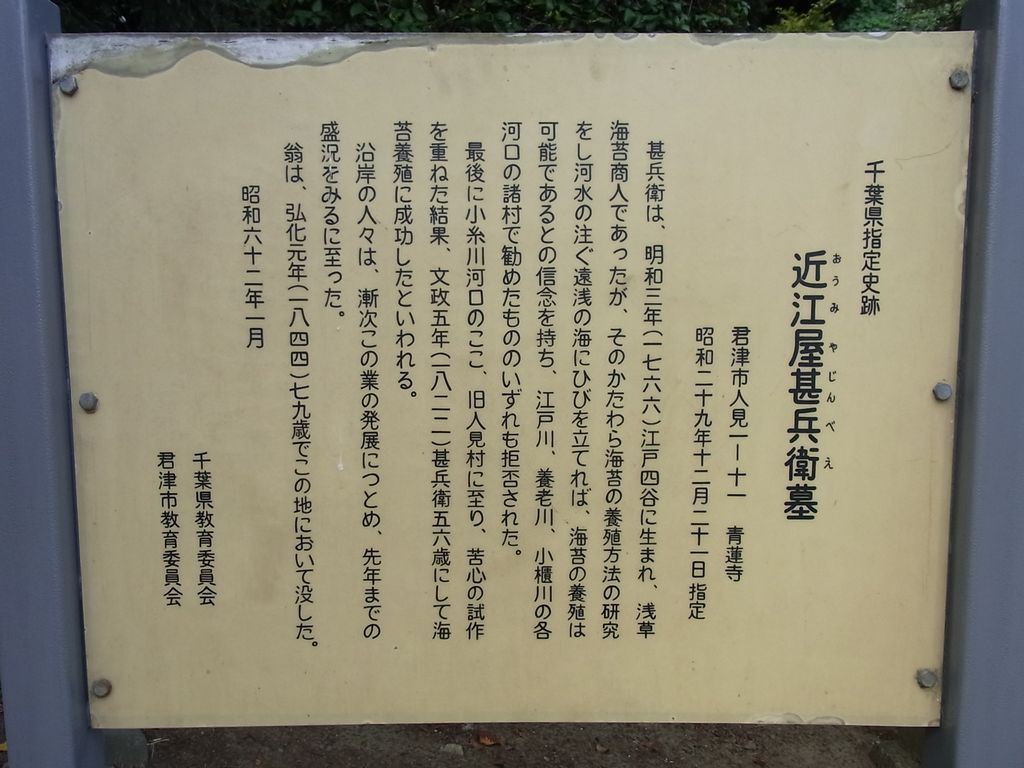 千葉県指定史跡
近江屋甚兵衛墓
おうみやじんべえ
君津市人見一―十一 青蓮寺
昭和二十九年十二月二十一日指定
甚兵衛は、明和三年(一七六六)江戸四谷に生まれ、浅草
海苔商人であったが、そのかたわら海苔の養殖方法の研究
をし河水の注ぐ遠浅の海にひびを立てれば、海苔の養殖は
可能であるとの信念を持ち、江戸川、養老川、小櫃川の各
河口の諸村で勧めたもののいずれも拒否された。
最後に小糸川河口のここ、旧人見村に至り、苦心の試作
を重ねた結果、文政五年(一八二二)甚兵衛五六歳にして海
苔養殖に成功したといわれる。
沿岸の人々は、漸次この業の発展につとめ、先年までの
盛況をみるに至った。
翁は、弘化元年(一八四四)七九歳でこの地において没した。
昭和六十二年一月
千葉県教育委員会
君津市教育委員会